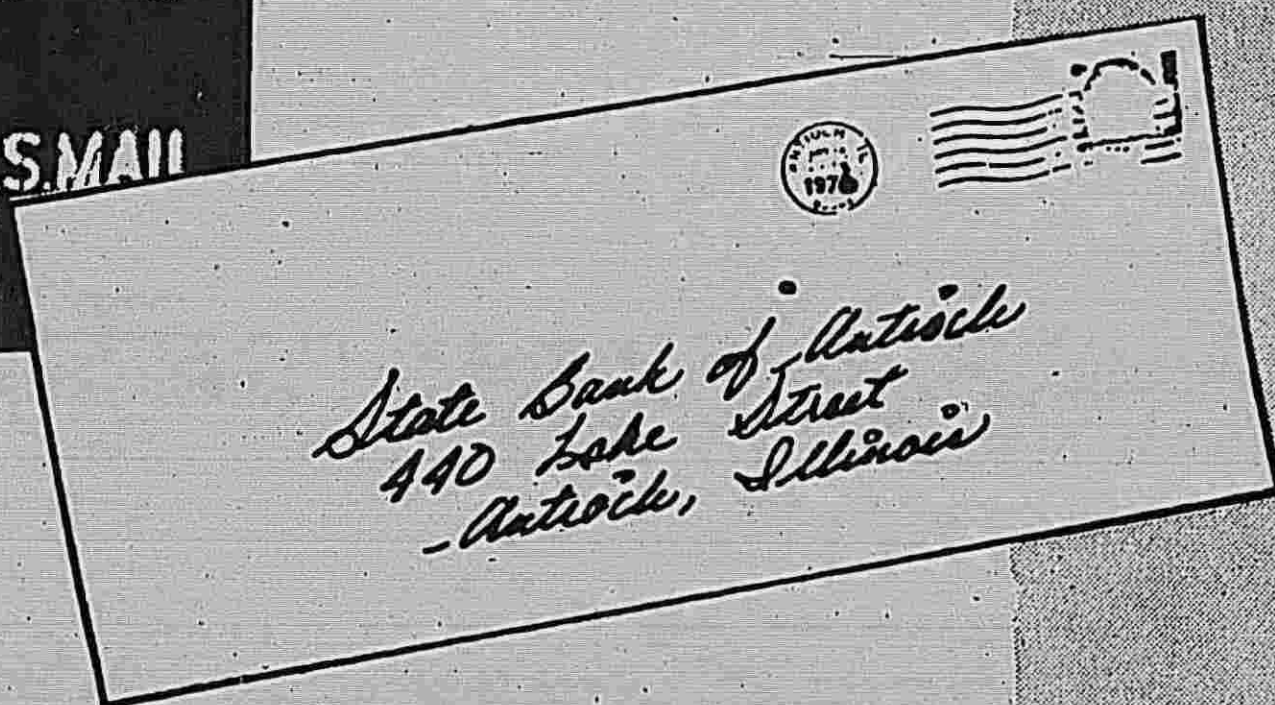 S.MAIL
ANTIOCH IL
State Bank of Antioch
440 Lake Street
Antioch, Illinois